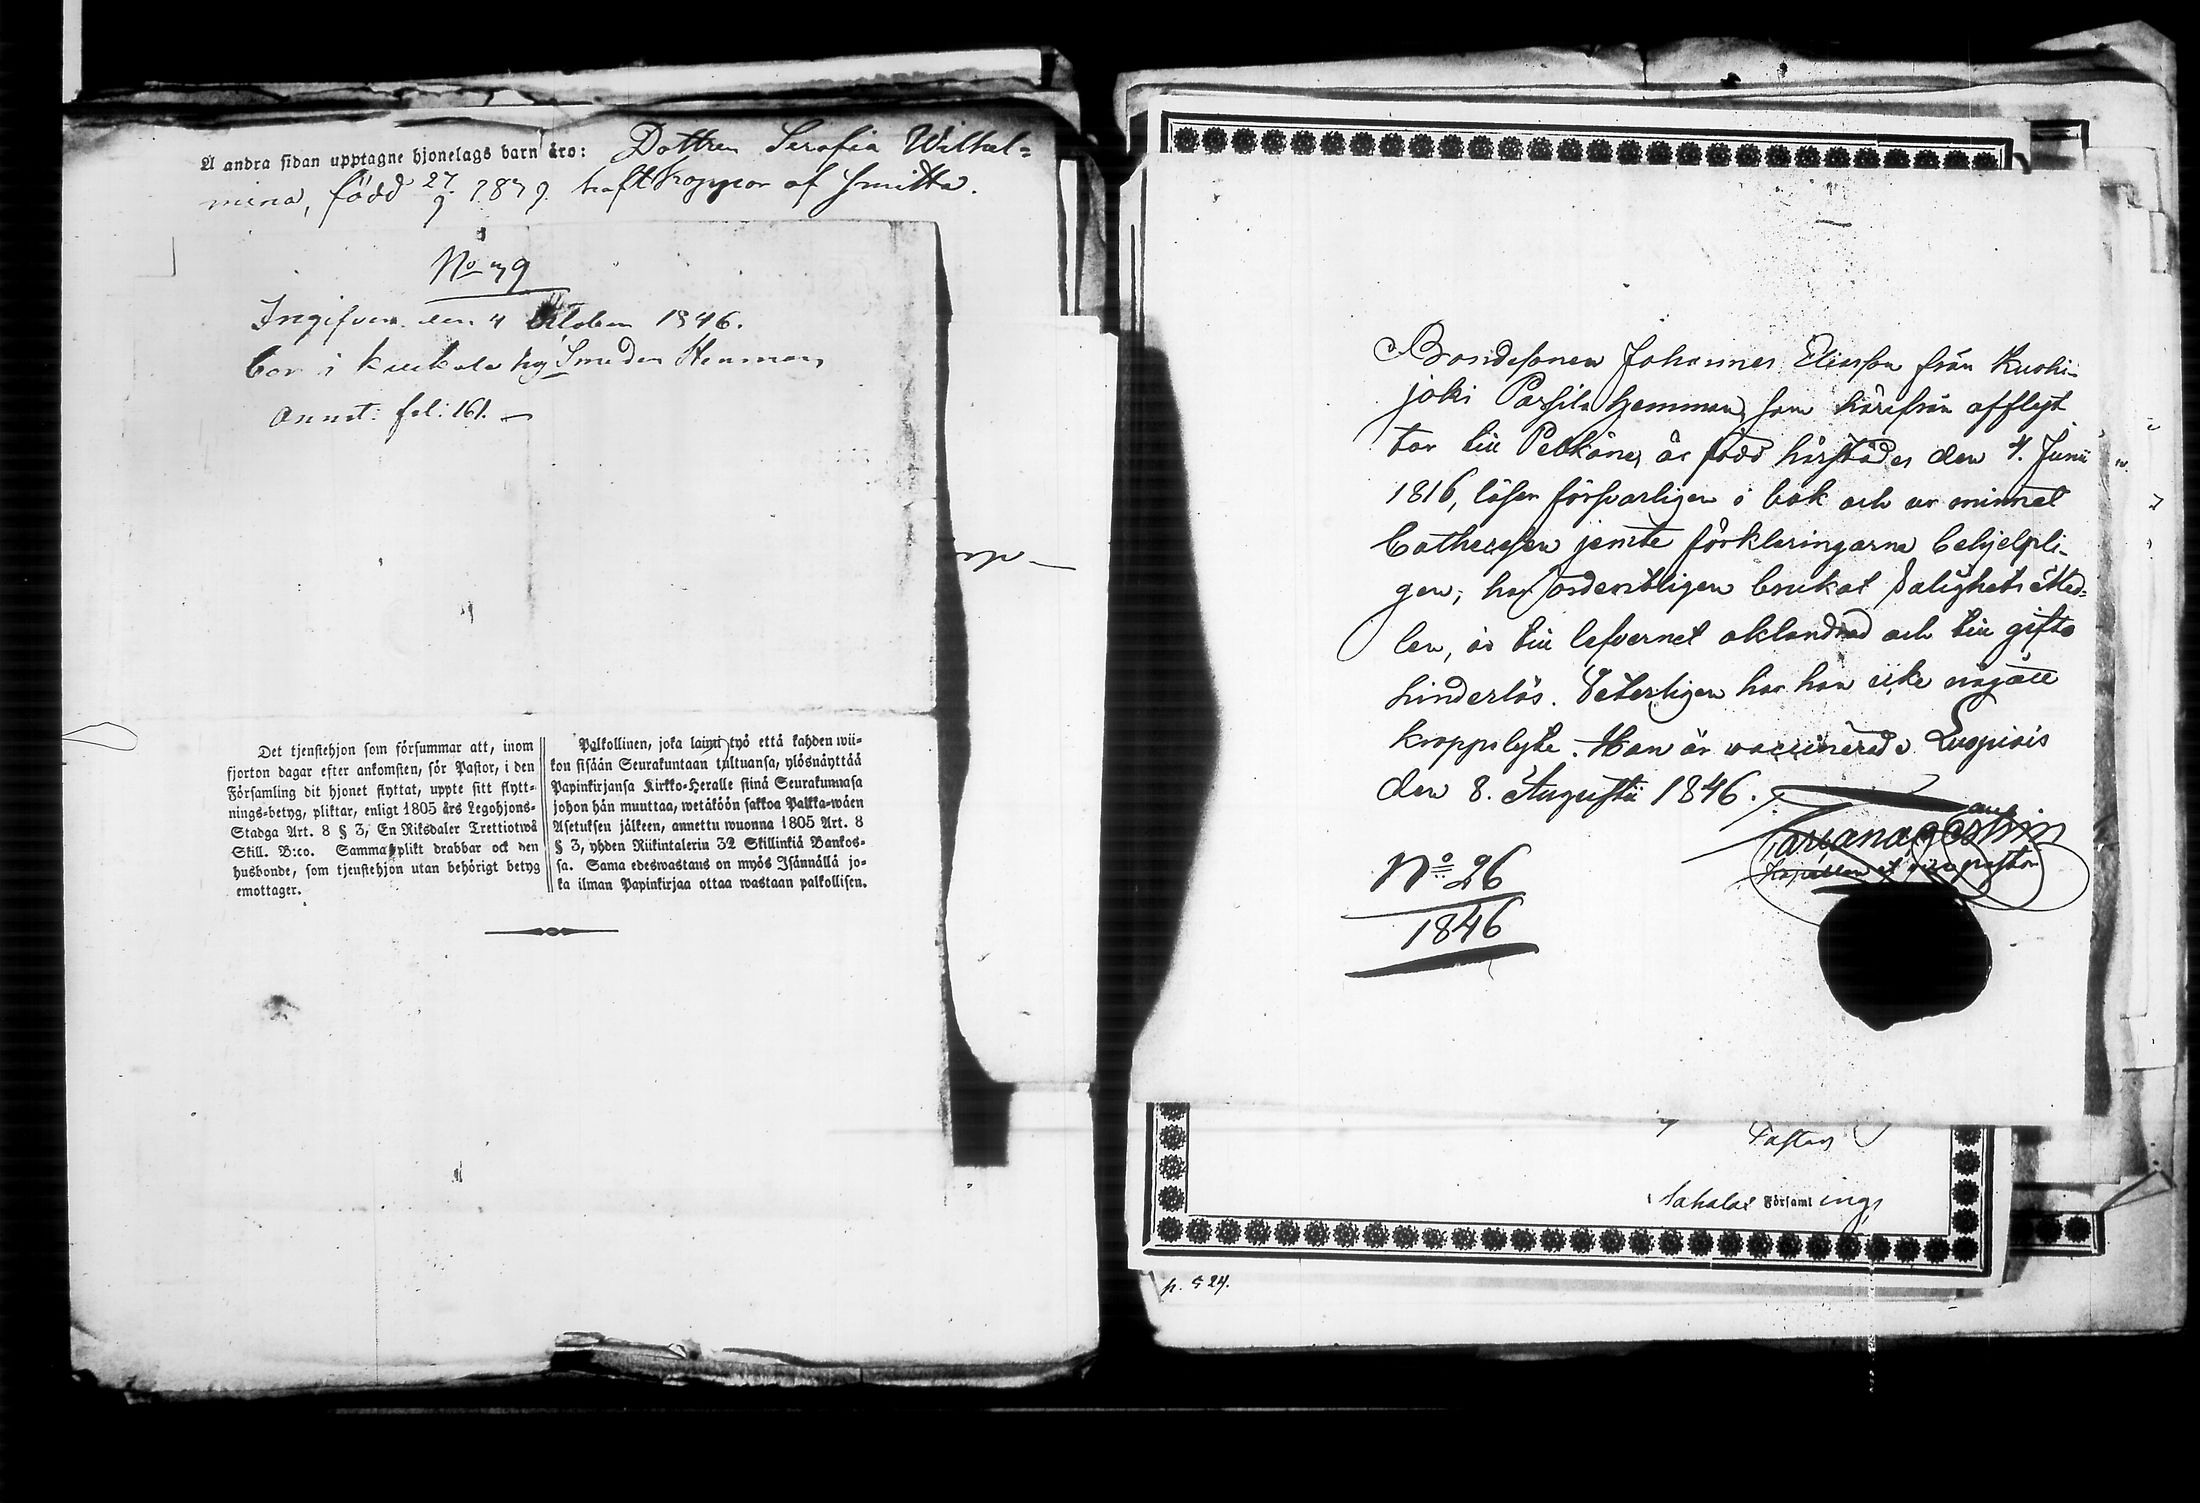 Å andra sidan upptagne hjonelags barn äro: Dottren Serafia Wilhel=
mina, född 27/9 1879. haft koppor af smitta.
No 79
Ingifven den 4 October 1846.
bor i Kuckola by Smeden Henman
Annot: fol: 161.
Det tjenstehjon som försummar att, inom
fjorton dagar efter ankomsten, för Pastor, i den
Församling dit hjonet flyttat, uppte sitt flytt-
nings-betyg, pliktar, enligt 1805 års Legohjons-
Stadga Art. 8 § 3, En Riksdaler Trettiotwå
Skill. B:co. Samma plikt drabbar ock den
husbonde, som tjenstehjon utan behörigt betyg
emottager.
Palkollinen, joka laimi työ että kahden wii-
kon sisään Seurakuntaan tultuansa, ylösnäyttää
Papinkirjansa Kirkko-Herralle siinä Seurakunnasa
johon hän muuttaa, wetäköön sakkoa Palkka-wäen
Asetuksen jälkeen, annettu wuonna 1805 Art. 8
§ 3, yhden Riikintalerin 32 Skillinkiä Bankos-
sa. Sama edeswastaus on myös Isännällä jo-
ka ilman Papinkirjaa ottaa wastaan palkollisen.
Bondesonen Johannes Eliasson från Kuohi-
joki Parsila hemman, som härifrån afflyt
tar till Pelkäne, är född härstädes den 4. Junii
1816, läser försvarligen i bok och ur minnet
Cathechesen jemte förklaringarne behjelpli-
gen; har ordentligen brukat Salighets Med=
len, är till lefvernet oklandrad och till gifte
hinderlös. Veterligen har han icke någått
kroppslyte. Han är vaccinerad. Luopiois
den 8. Augusti 1846.
No 26
1846
Pastor
Sahalax Församlings
p. 524.